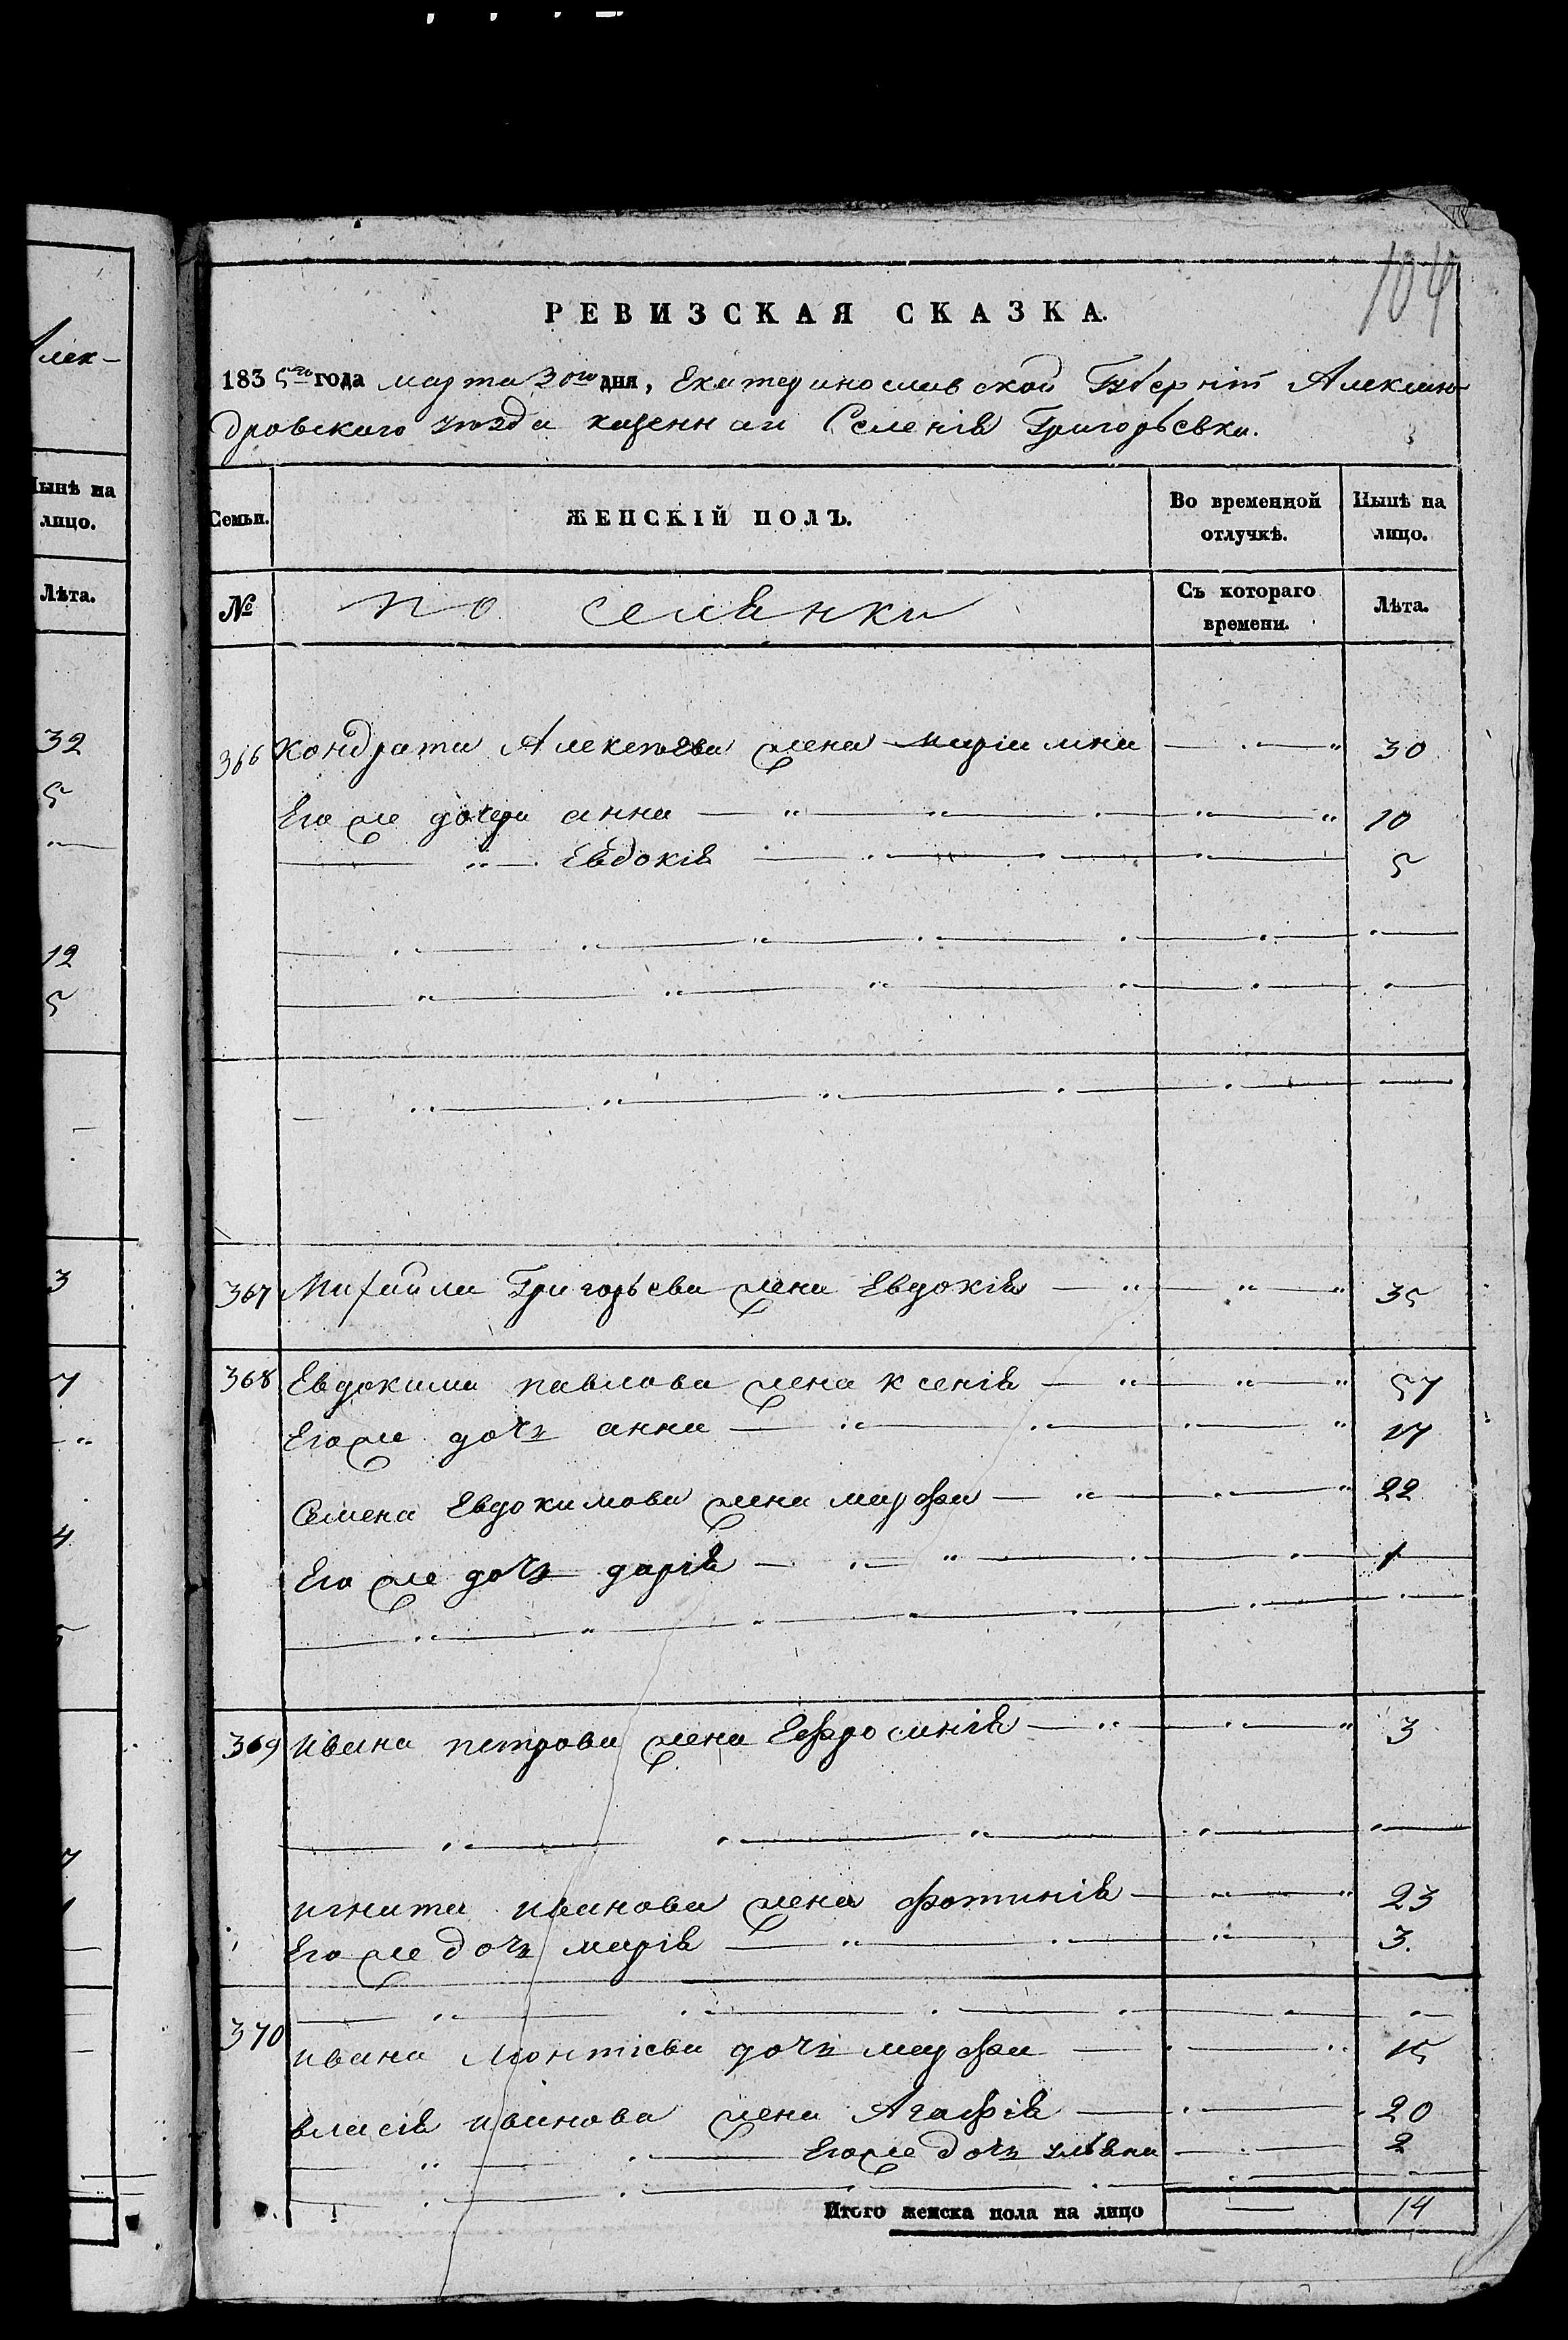 104
РЕВИЗСКАЯ СКАЗКА.
1835го года марта 30го дня, Екатеринославской Губерніи Алексан-
дровскаго уѣзда казеннаи Селенія Григорьевки.
Семьи.
ЖЕНСКІЙ ПОЛЪ.
Во временной отлучкѣ.
Нынѣ на лицо.
№
поселянки
Съ котораго времени.
Лѣта.
366 Кондрата Алексѣева жена Маріамна 30
Его же дочери анна 10
Евдокія 5
367 Михайла Григорьева жена Евдокія 35
368 Евдокима павлова жена ксенія 57
Его же дочь анна 17
Семена Евдокимова жена марфа 22
Его же дочь дарія 1
369 ивана петрова жена Ефросинія 3
игната иванова жена фотинія 23
Его же дочь марія 3.
370
ивана Леонтіева дочь марфа 15
власія иванова жена Агафія 20
Его же дочь ульяна 2
Итого женска пола на лицо 14
Алек-
Нынѣ на
лицо.
Лѣта.
32
5
12
5
3
7
4